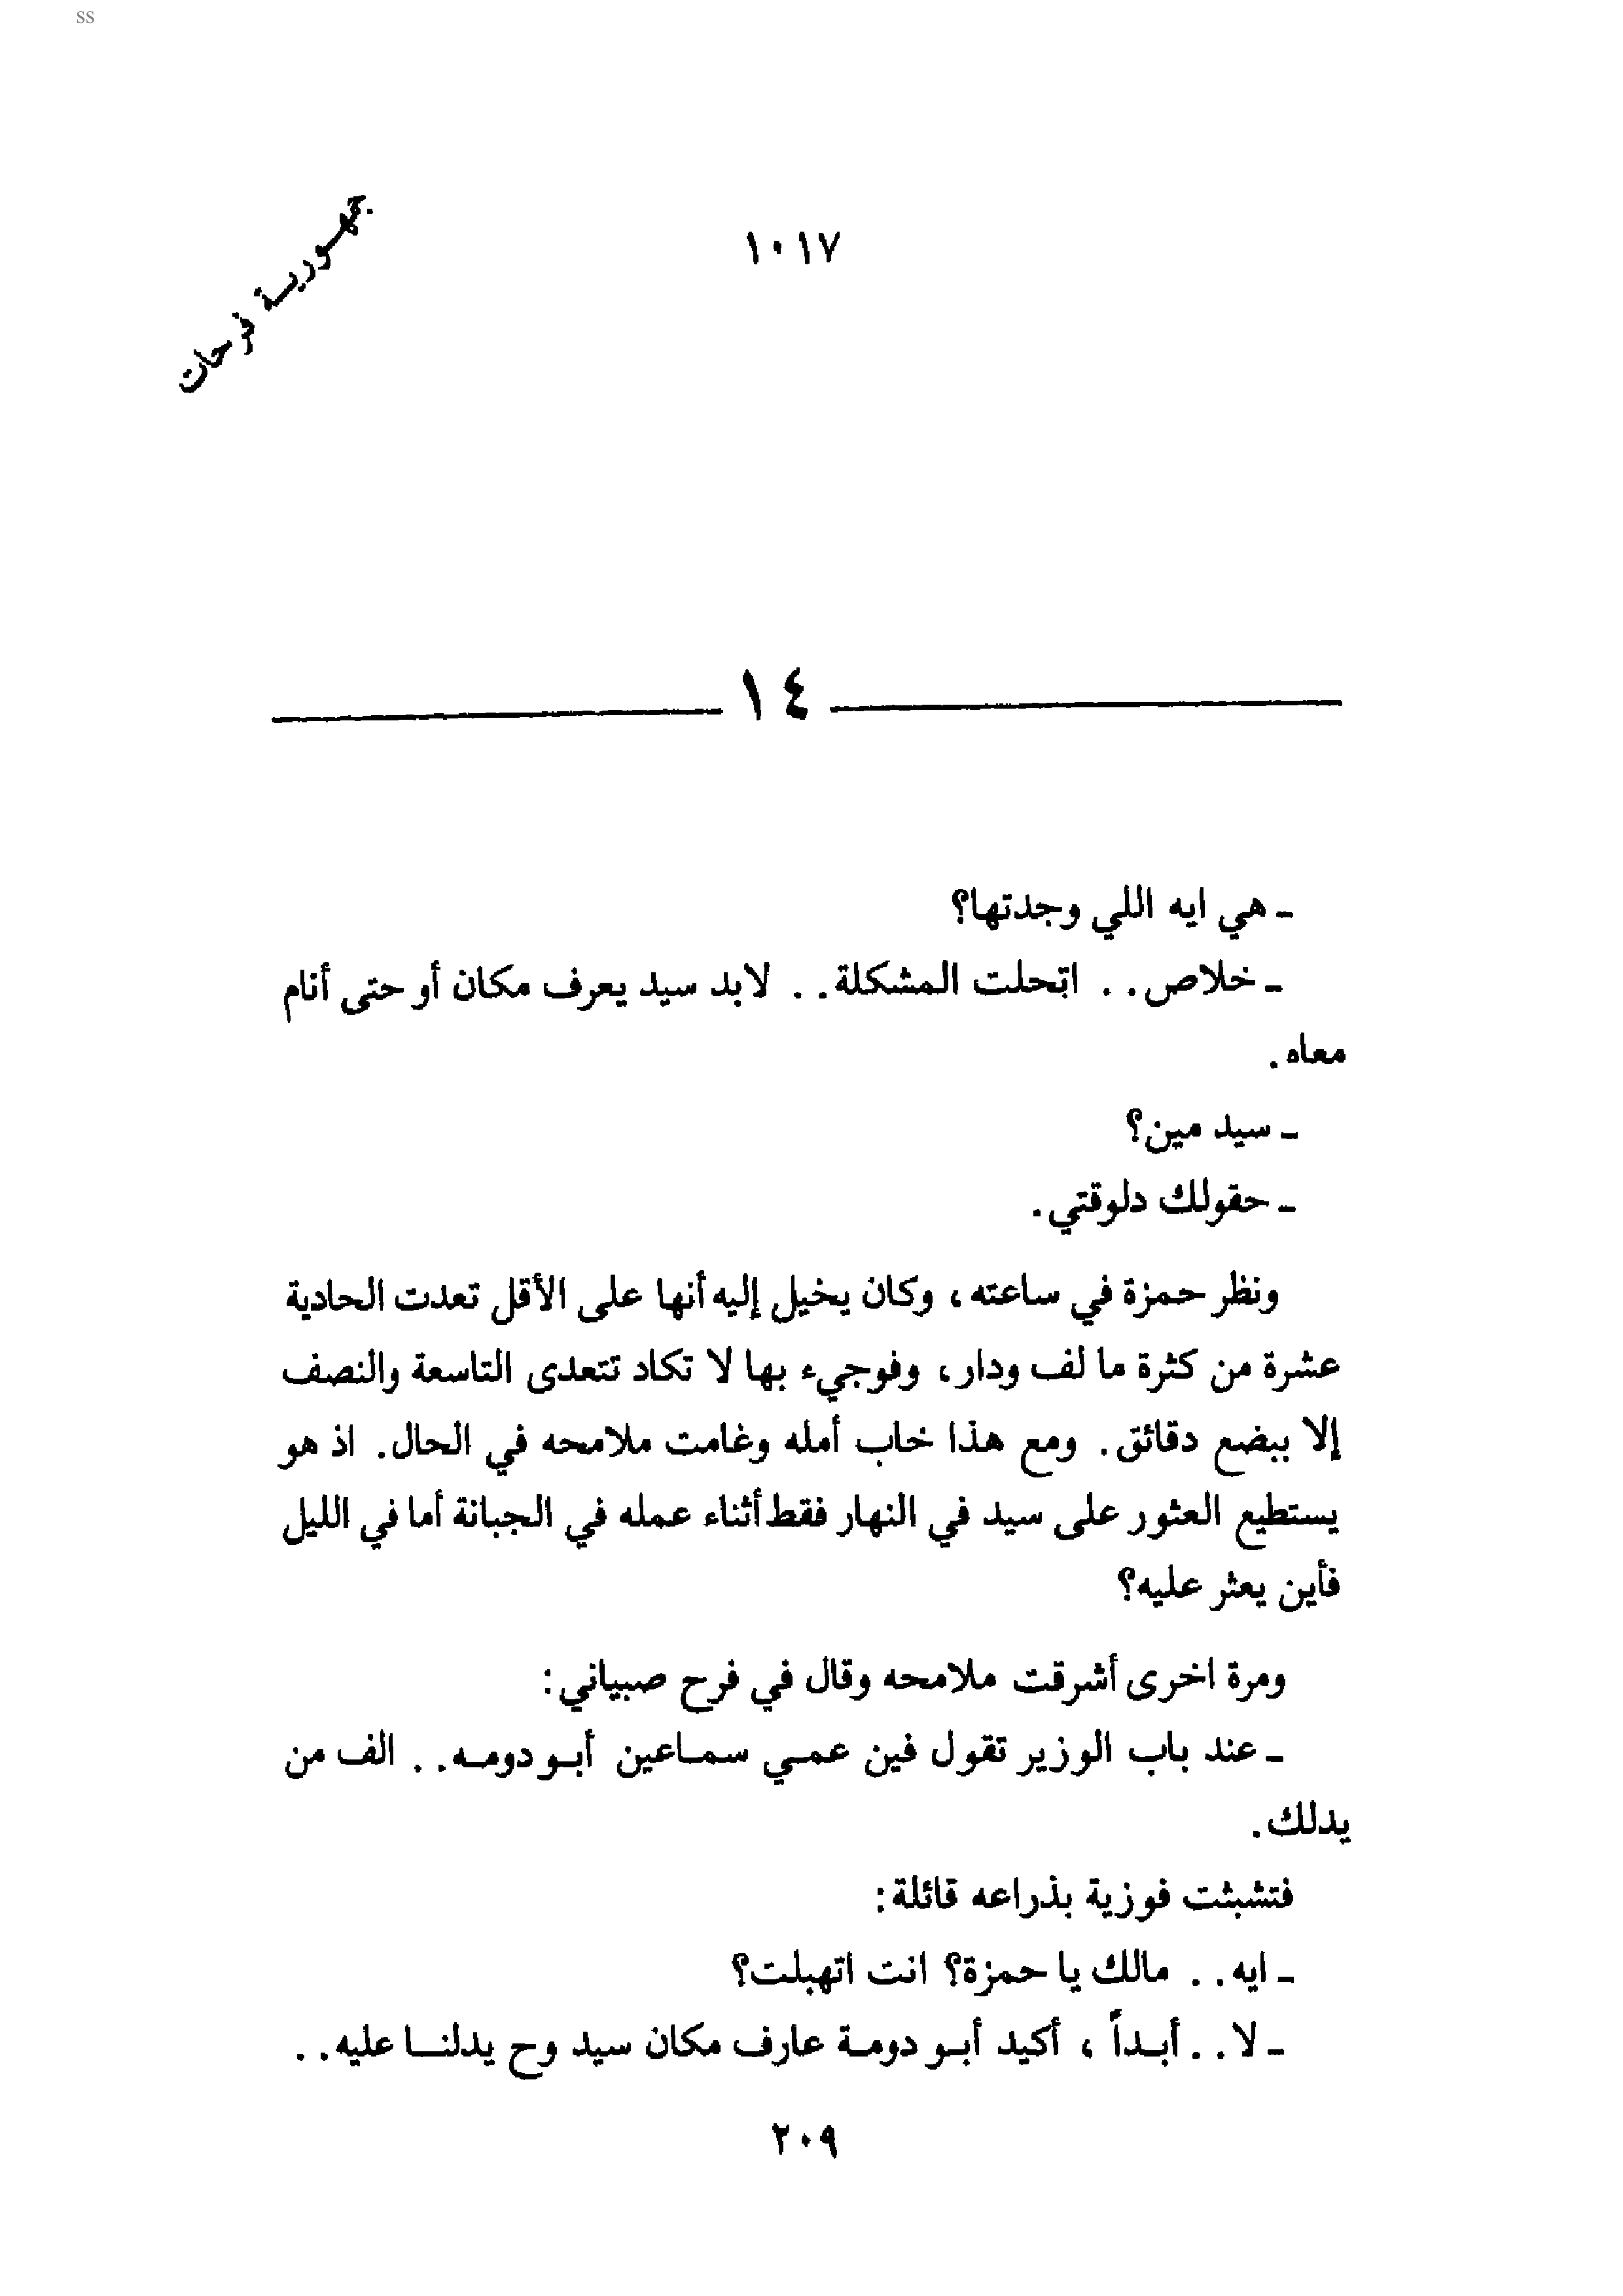 ss
١٠١٧
جمهورية فرحات
١٤
ـ هي ايه اللي وجدتها؟
ـ خلاص.. اتحلت المشكلة.. لابد سيد يعرف مكان أو حتى أنام
معاه.
ـ سيد مين؟
ـ حقولك دلوقتي.
ونظر حمزة في ساعته، وكان يخيل إليه أنها على الأقل تعدت الحادية
عشرة من كثرة ما لف ودار، وفوجيء بها لا تكاد تتعدى التاسعة والنصف
إلا ببضع دقائق. ومع هذا خاب أمله وغامت ملامحه في الحال. اذ هو
يستطيع العثور على سيد في النهار فقط أثناء عمله في الجبانة أما في الليل
فأين يعثر عليه؟
ومرة اخرى أشرقت ملامحه وقال في فرح صبياني:
ـ عند باب الوزير تقول فين عمي سماعين أبو دومه.. الف من
يدلك.
فتشبثت فوزية بذراعه قائلة:
ـ ايه.. مالك يا حمزة؟ انت اتهبلت؟
ـ لا.. أبداً، أكيد أبو دومة عارف مكان سيد وح يدلنا عليه..
٢٠٩